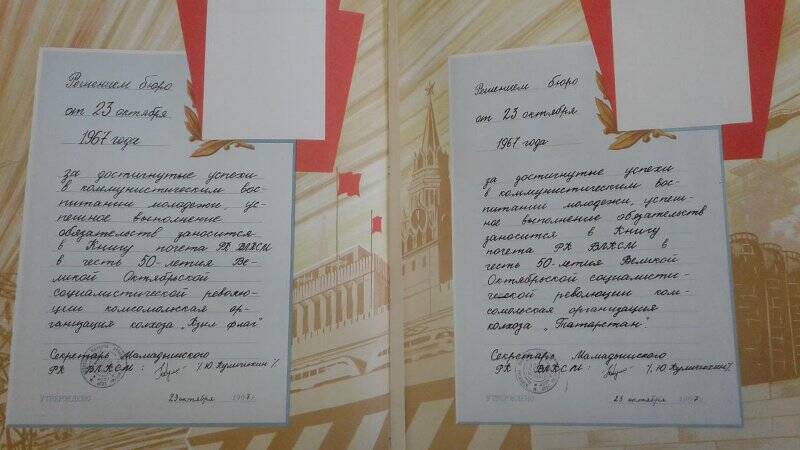 Решением бюро
от 23 октября
1967 года
за достигнутые успехи
в коммунистическим вос-
питании молодежи, ус-
пешное выполнение
обязательств заносится
в Книгу почета РК ВЛКСМ
в честь 50-летия Ве-
ликой Октябрьской
социалистической револю-
ции комсомольская ор-
ганизация колхоза "Кзыл флаг"
Секретарь Мамадышского
РК ВЛКСМ:
УТВЕРЖДЕНО 23 октября 1967 г.
Решением бюро
от 23 октября
1967 года
за достигнутые успехи
в коммунистическим вос-
питании молодежи, успеш-
ное выполнению обязательств
заносится в Книгу
почета РК ВЛКСМ в
честь 50-летия Великой
Октябрьской социалисти-
ческой революции ком-
сомольская организация
колхоза "Татарстан"
Секретарь Мамадышского
РК ВЛКСМ:
УТВЕРЖДЕНО 23 октября 1967 г.